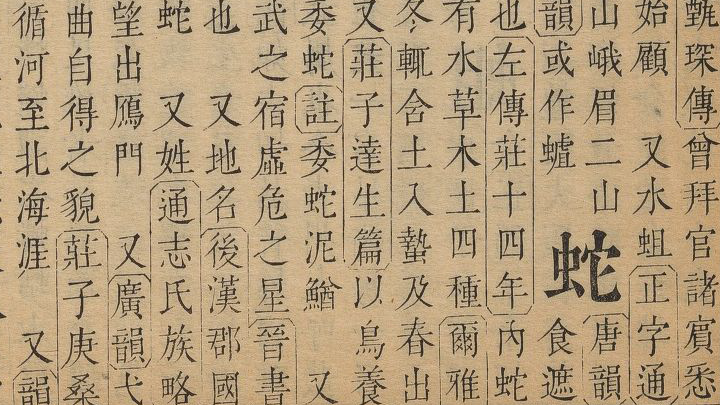 甄琛傳曾拜官諸賓悉
始顧 又水蛆正字通
山峨眉二山
韻或作蠦
蛇
唐韻
食遮
也左傳莊十四年內蛇
有水草木土四種爾雅
冬輒含土入蟄及春出
又莊子達生篇以鳥養
委蛇註委蛇泥鰌 又
武之宿虛危之星晉書
也 又地名後漢郡國
蛇 又姓通志氏族略
望出鴈門 又廣韻弋
曲自得之貌莊子庚桑
循河至北海涯 又韻